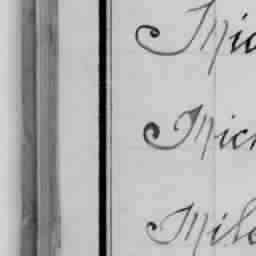 Mic
Mich
Mile